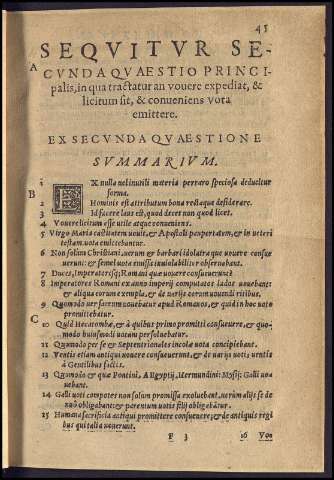 45
SEQVITVR SE-
A
CVNDA QVAESTIO PRINCI-
palis, in qua tractatur an vovere expediat, &
licitum sit, & conveniens vota
emittere.
EX SECVNDA QVAESTIONE
SVMMARIVM.
1 EX nulla vel inutili materia perraro speciosa deducitur
forma.
B
2 Hominis est attributum bona rectaque desiderare.
3 Id facere laus est, quod decet non quod licet.
4 Vovere licitum esse utile atque conveniens.
5 Virgo Maria castitatem vovit, & Apostoli paupertatem, & in veteri
testam. vota emittebantur.
6 Non solum Christiani, verum & barbari idolatraque vovere consue
verunt: & semel vota emissa inviolabiliter observabant.
7 Duces, Imperatoresq; Romani quae vovere consueverunt?
8 Imperatores Romani ex anno imperij computatos ludos vovebant:
& aliqua eorum exempla, & de varijs eorum vovendi ritibus.
9 Quomodo ver sacrum vovebatur apud Romanos, & quid in hoc voto
promittebatur.
C
10 Quid Hecatombae, & à quibus primo promitti consuevere, & quo-
modo huiusmodi votum persolvebatur.
11 Quomodo per se & Septentrionales incolae vota concipiebant.
12 Ventis etiam antiqui vovere consueverunt, & de varijs votis ventis
à Gentilibus factis.
13 Quomodo & quae Pontini, AEgyptij, Hermundini: Mysij: Galli vo-
vebant.
14 Galli voti compotes non solum promissa exolvebant, verum alijs se de
novo obligabant: & parentum votis filij obligebātur.
15 Humana sacrificia antiqui promittere consuevere; & de antiquis regi
bus qui talia voverunt.
F 3
16 Vov